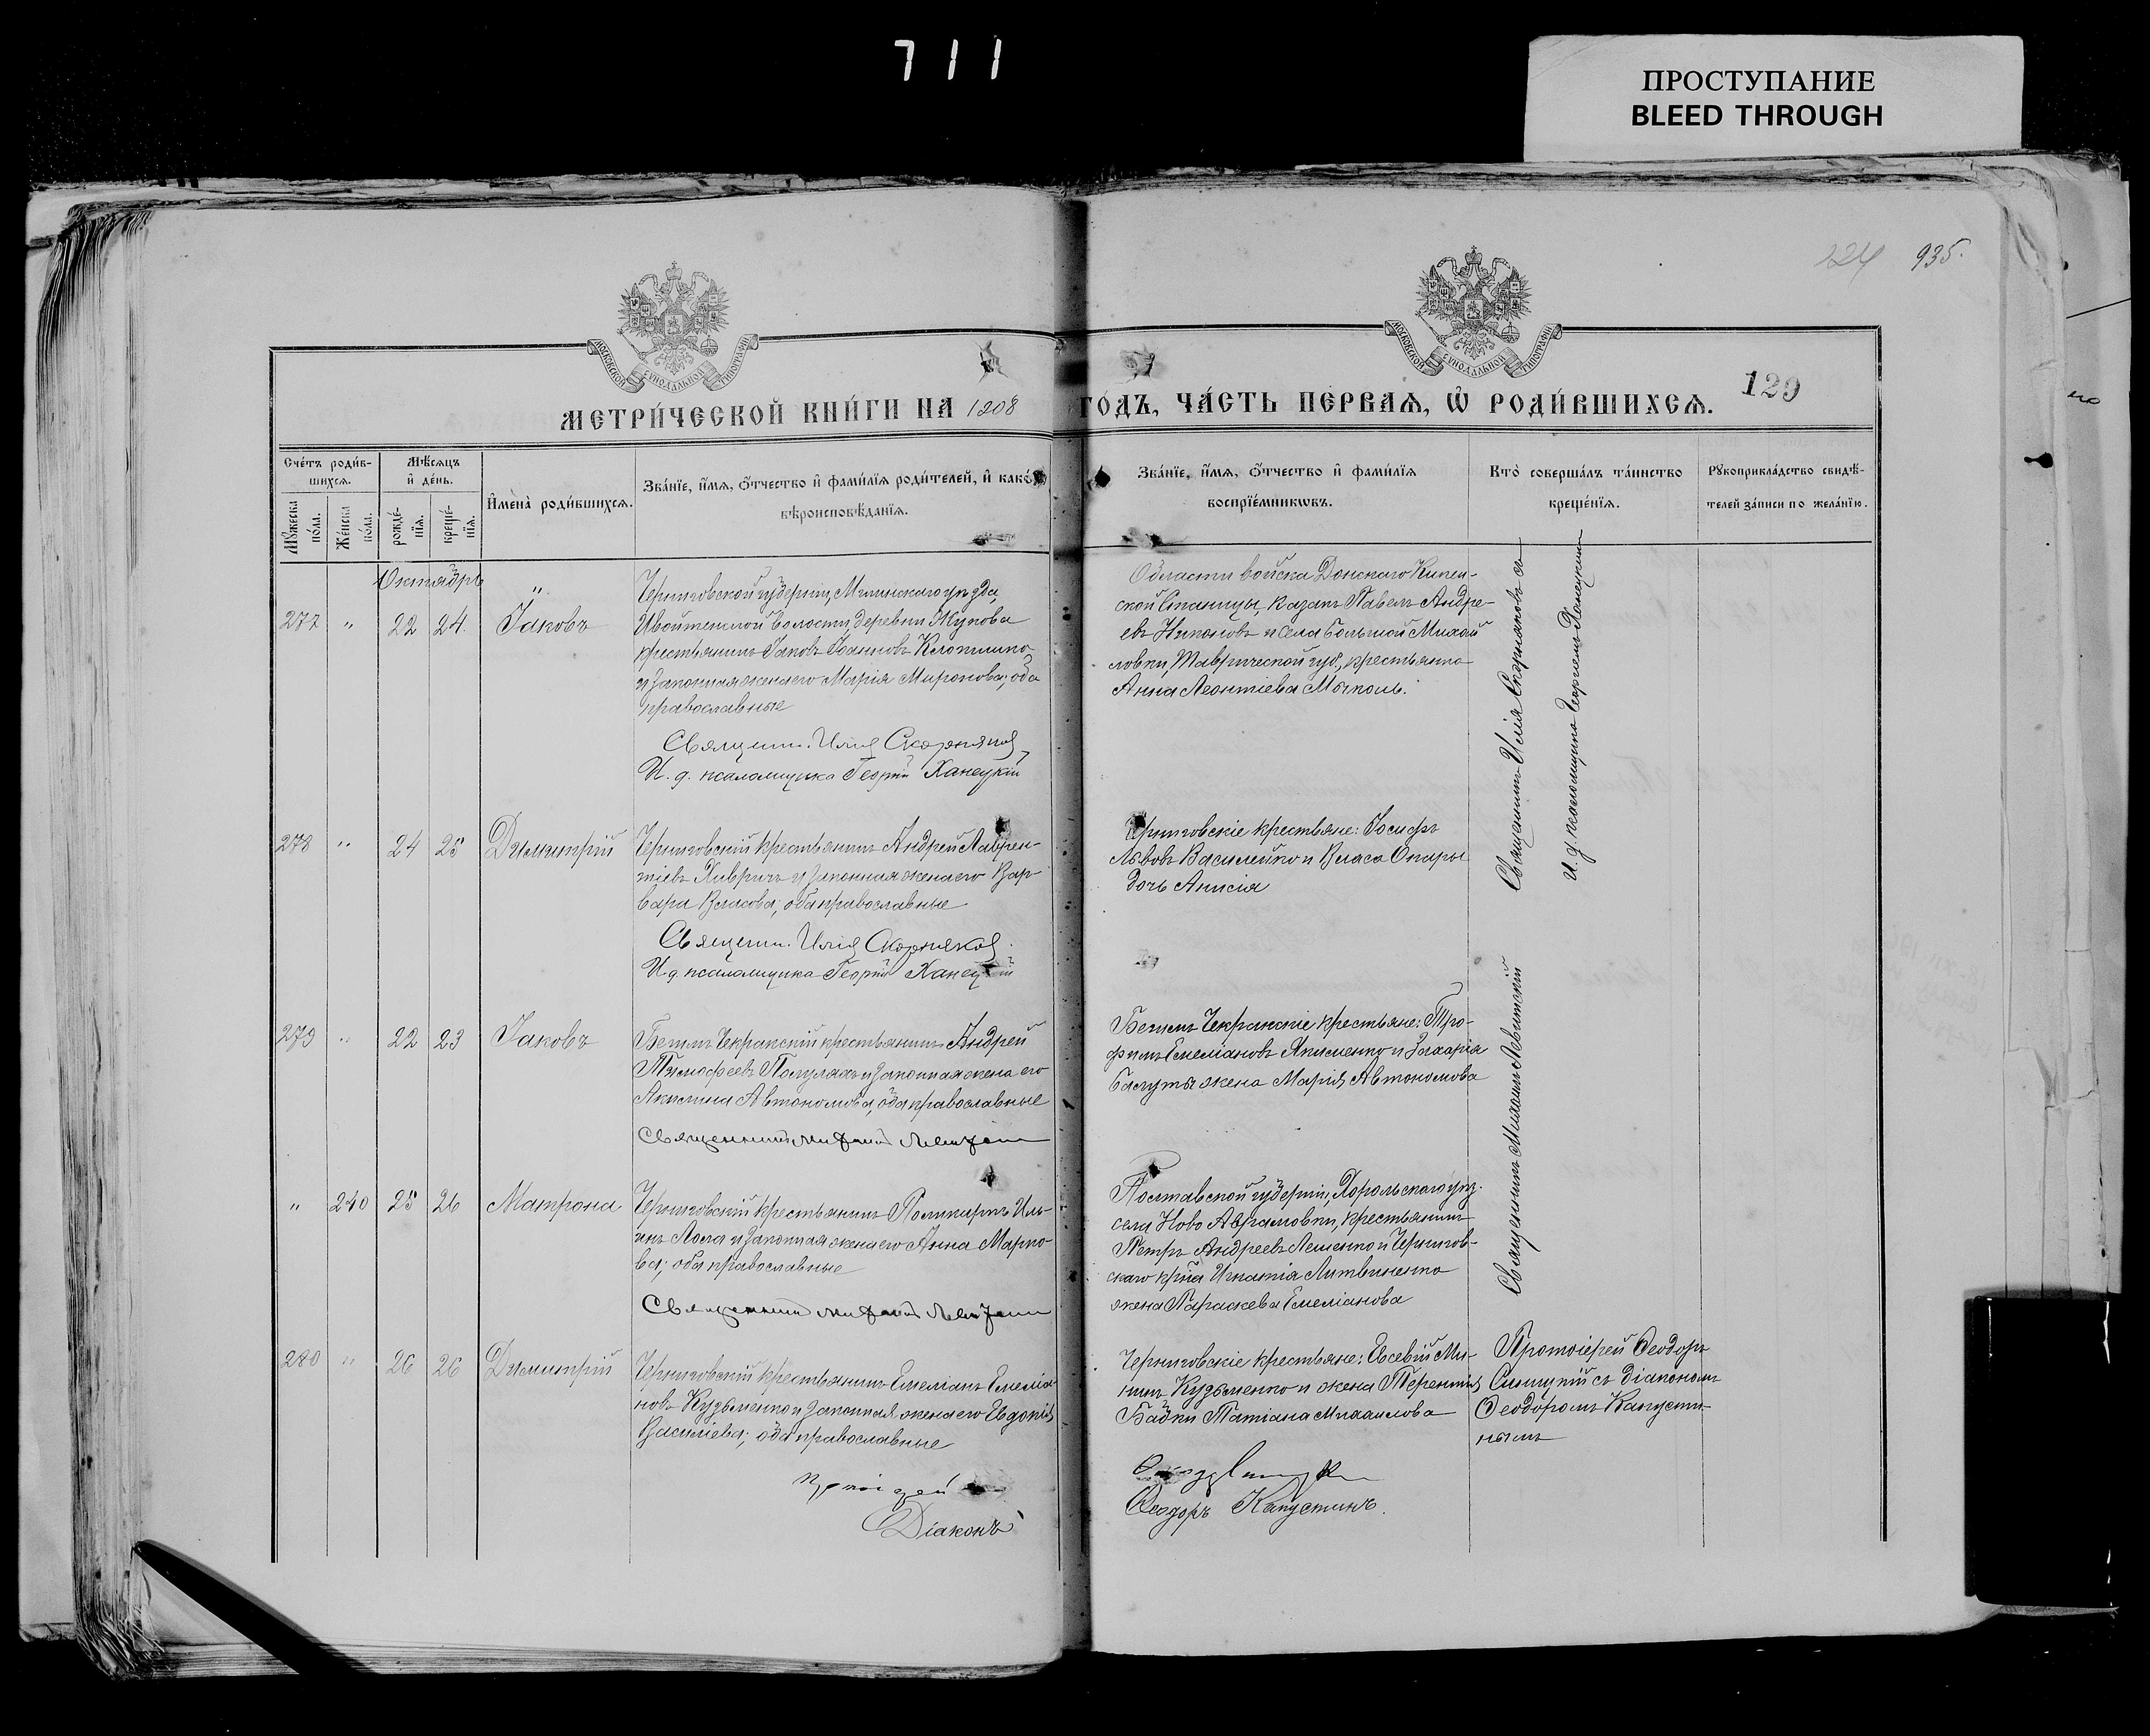 711
ПРОСТУПАНИЕ
BLEED THROUGH
224 935.
МОСКОВСКОЙ СѴНОДАЛЬНОЙ ТИПОГРАФІИ
МОСКОВСКОЙ СѴНОДАЛЬНОЙ ТИПОГРАФІИ
129
МЕТРИ́ЧЕСКОЙ КНИ́ГИ НА 1908 ГО́ДЪ, ЧА́СТЬ ПЕ́РВАѦ, Ѡ РОДИ́ВШИХСѦ.
Сче́тъ роди́в-
шихсѧ.
Мꙋ́жеска по́ла.
Же́нска по́ла.
Мѣ́сѧцъ
и҆ де́нь.
рожде́-
нїѧ.
креще́-
нїѧ.
И҆мена̀ роди́вшихсѧ.
Зва́нїе, и҆́мѧ, ѻ҆́тчество и҆ фами́лїѧ роди́телей, и҆ како́гѡ
вѣроисповѣ́данїѧ.
Зва́нїе, и҆́мѧ, ѻ҆́тчество и҆ фами́лїѧ
воспрїе́мникѡвъ.
Кто̀ соверша́лъ та́инство
креще́нїѧ.
Рꙋкоприкла́дство свидѣ́-
телей за́писи по жела́нїю.
Октябрь
277 " 22 24. Іаковъ
Черниговской губерніи, Мглинскаго уѣзда,
волости, деревни Жукова
крестьянинъ Іаковъ Іоанновъ
и законная жена его Марія Миронова; оба
православные
Священн. Илія Скорняков
И. д. псаломщика Георгій Ханецкій
Области войска Донскаго
ской Станицы, казакъ Павелъ Андре-
евъ Никоновъ и села Большой Михай
ловки, Таврической губ., крестьянка
Анна Леонтіева
Священникъ Илія Скорняковъ съ
И. д. псаломщика Георгіемъ Ханецкимъ
278 " 24 25 Димитрій
Черниговскій крестьянинъ Андрей Лаврен-
тіевъ и законная жена его Вар-
вара Власова; оба православные
Священн. Илія Скорняков.
И. д. псаломщика Георгій Ханецкій
Черниговскіе крестьяне: Іосифъ
Львовъ Василейко и Власа
дочь Анисія
279 " 22 23 Іаковъ
крестьянинъ Андрей
Тимофеевъ и законная жена его
Акилина Автономова, оба православные
Священникъ Михаилъ
крестьяне: Тро-
фимъ Емеліановъ Якименко и Захарія
жена Марія Автономова
Священникъ Михаилъ Левитскій
" 240 25 26 Матрона
Черниговскій крестьянинъ Поликарпъ Иль-
инъ и законная жена его Анна Марко-
ва; оба православные
Священникъ Михаилъ
Полтавской губерніи, Хорольскаго уѣз.
села Ново Аврамовки, крестьянинъ
Петръ Андреевъ Лещенко и Чернигов-
скаго кр-на Игнатія Литвиненко
жена Параскева Емеліанова
280 " 26 26 Димитрій
Черниговскій крестьянинъ Емеліанъ Емеліа-
новъ Кузьменко и законная жена его Евдокія
Василіева; оба православные
Протоіерей
Діаконъ
Черниговскіе крестьяне: Евсевій Ми-
нинъ Кузьменко и жена Терентія
Бойки Татіана Михаилова
Ѳеодоръ Капустинъ.
Протоіерей Ѳеодоръ
съ діакономъ
Ѳеодоромъ Капусти-
нымъ